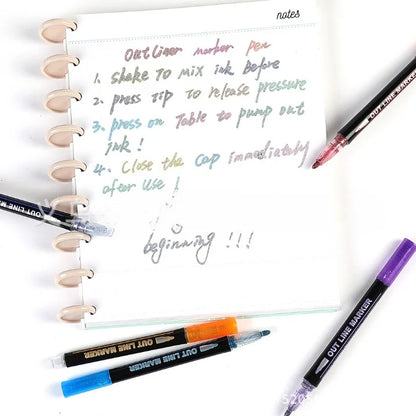 notes
Outliner marker pen
1. shake To mix ink before
2. press Tip To release pressure
3. press on Table to pump out
ink!
4. Close the cap immediately
after use!
beginning!!!
OUT LINE MARKER
OUT LINE MARKER
OUT LINE MARKER
OUT LINE MARKER
OUT LINE MARKER